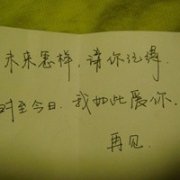 未来怎样，请你记得
时至今日．我如此爱你．
再见．